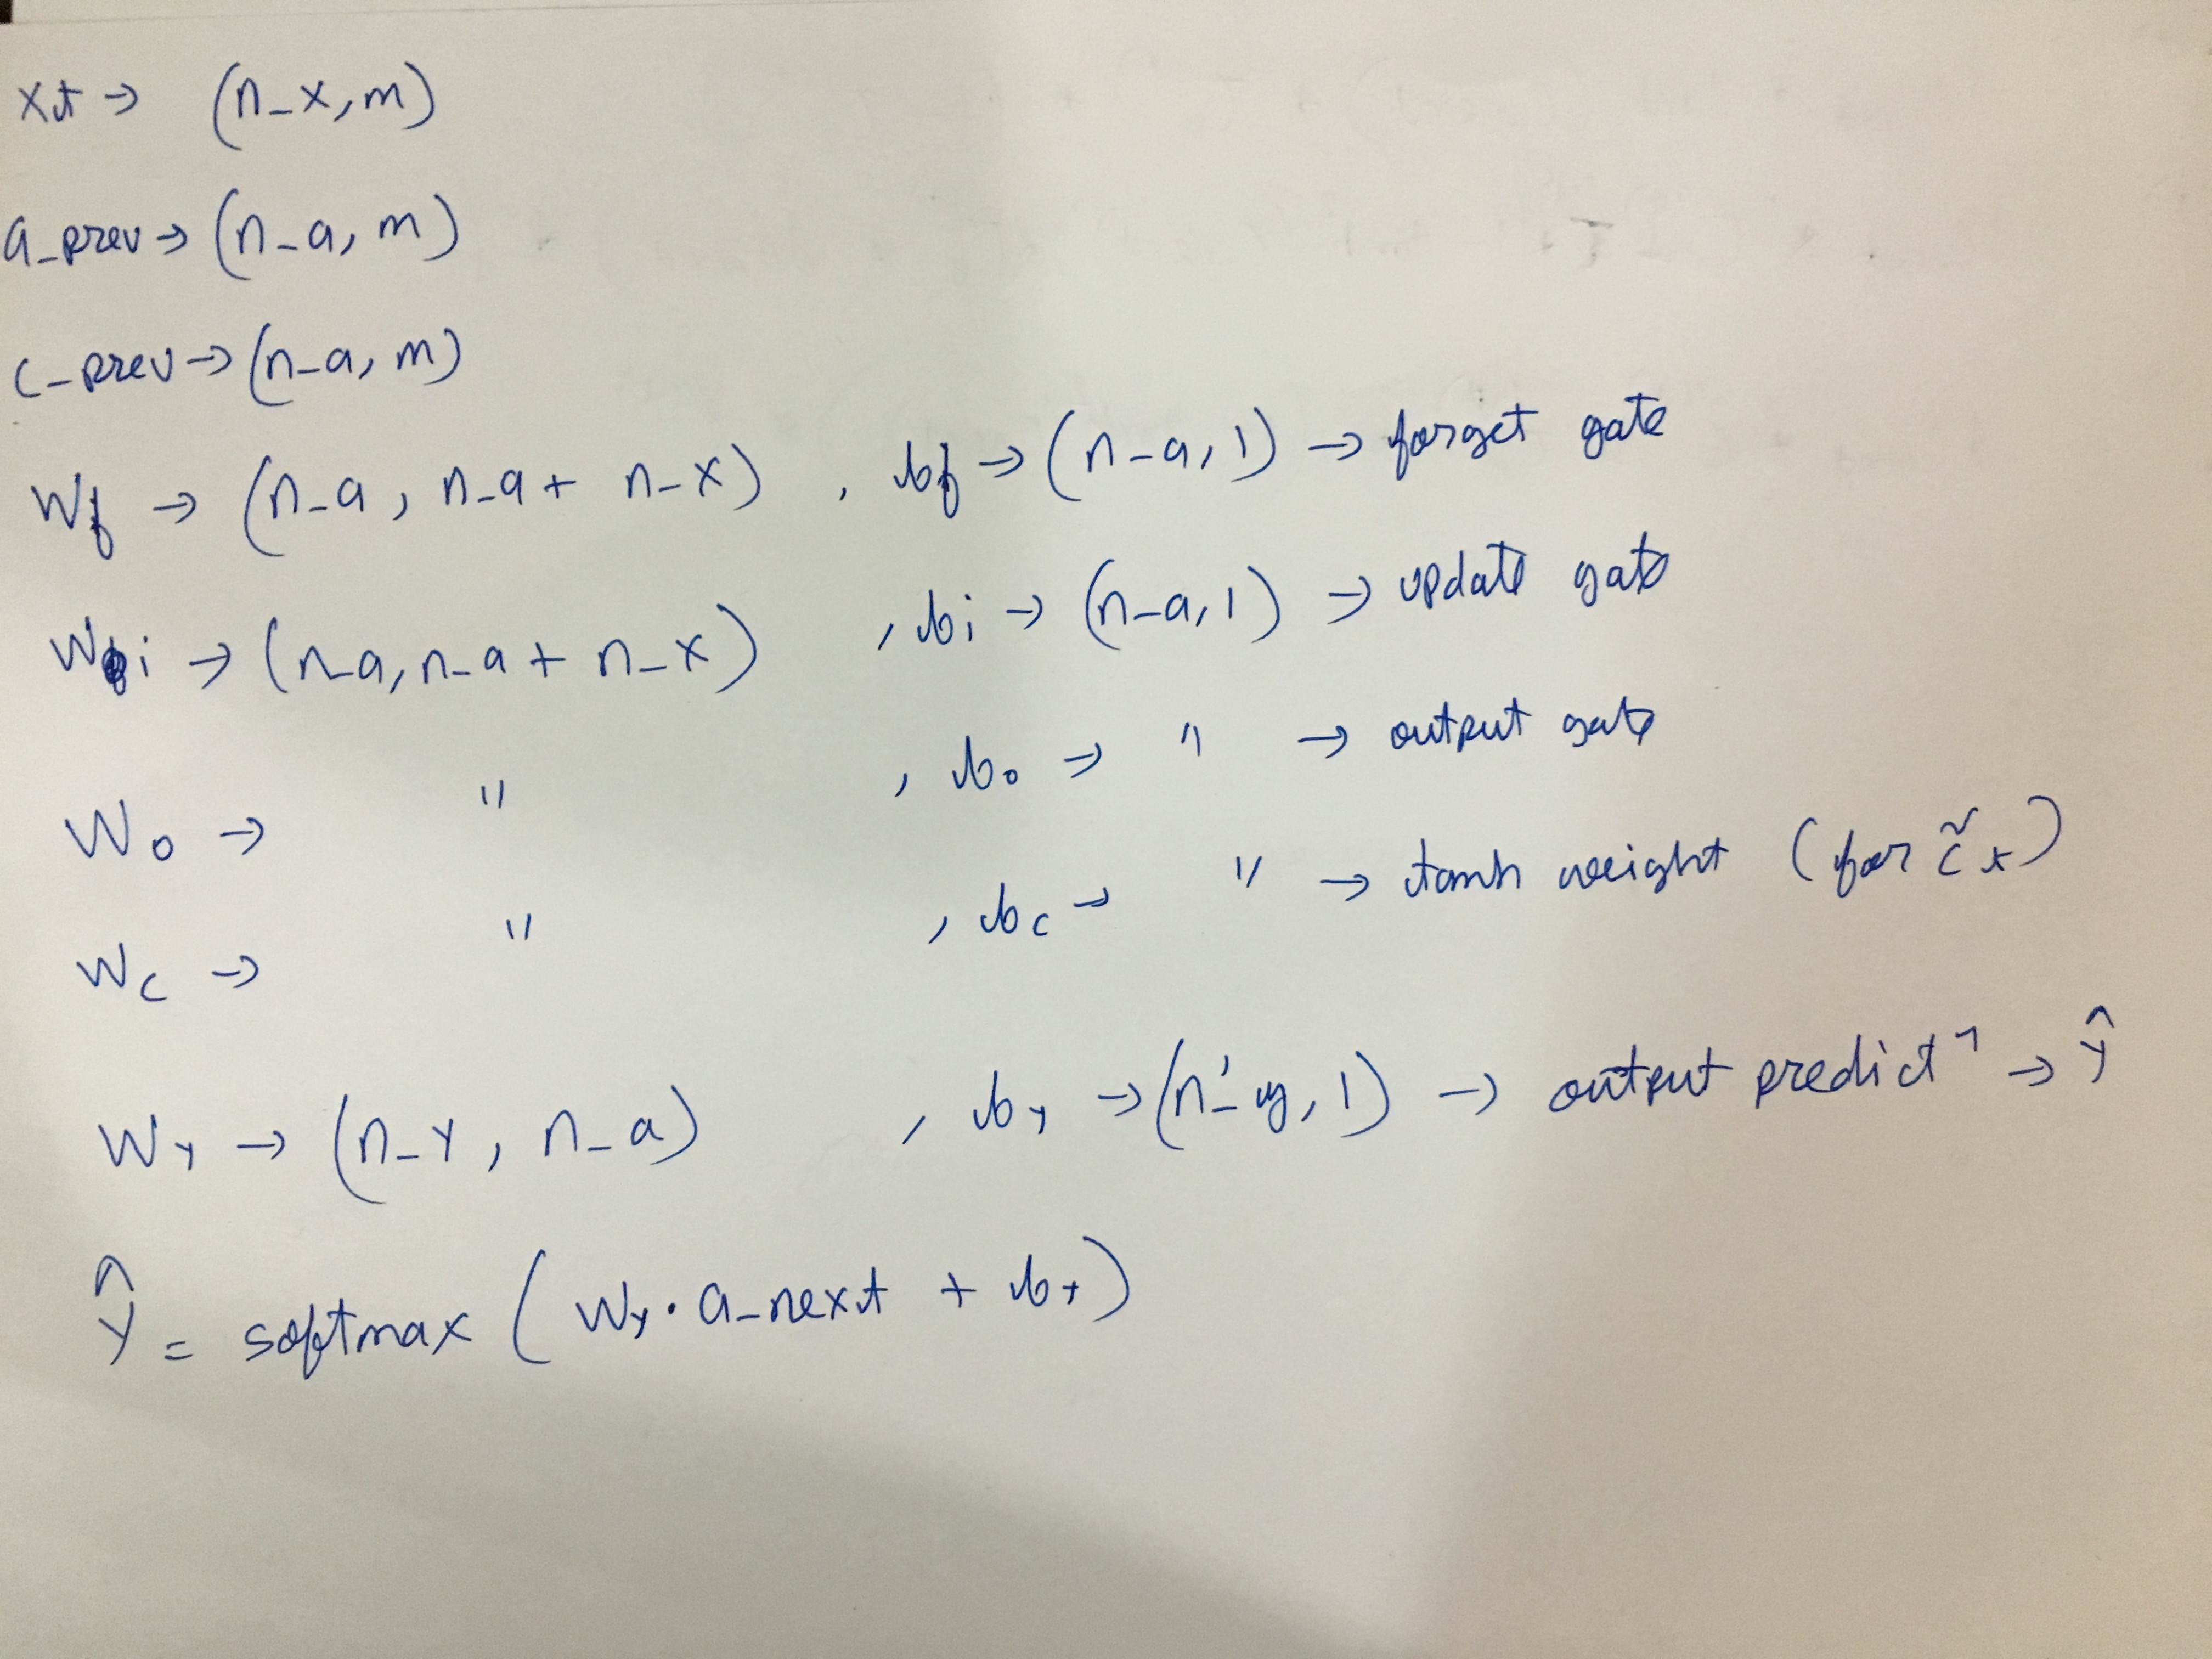 xt → (n_x, m)
a_prev → (n_a, m)
c_prev → (n_a, m)
Wf → (n_a, n_a + n_x) , bf → (n_a, 1) → forget gate
Wi → (n_a, n_a + n_x) , bi → (n_a, 1) → update gate
Wo → " , bo → " → output gate
Wc → " , bc → " → tanh weight (for c̃t)
Wy → (n_y, n_a) , by → (n_y, 1) → output predictⁿ → ŷ
ŷ = softmax (Wy · a_next + by)